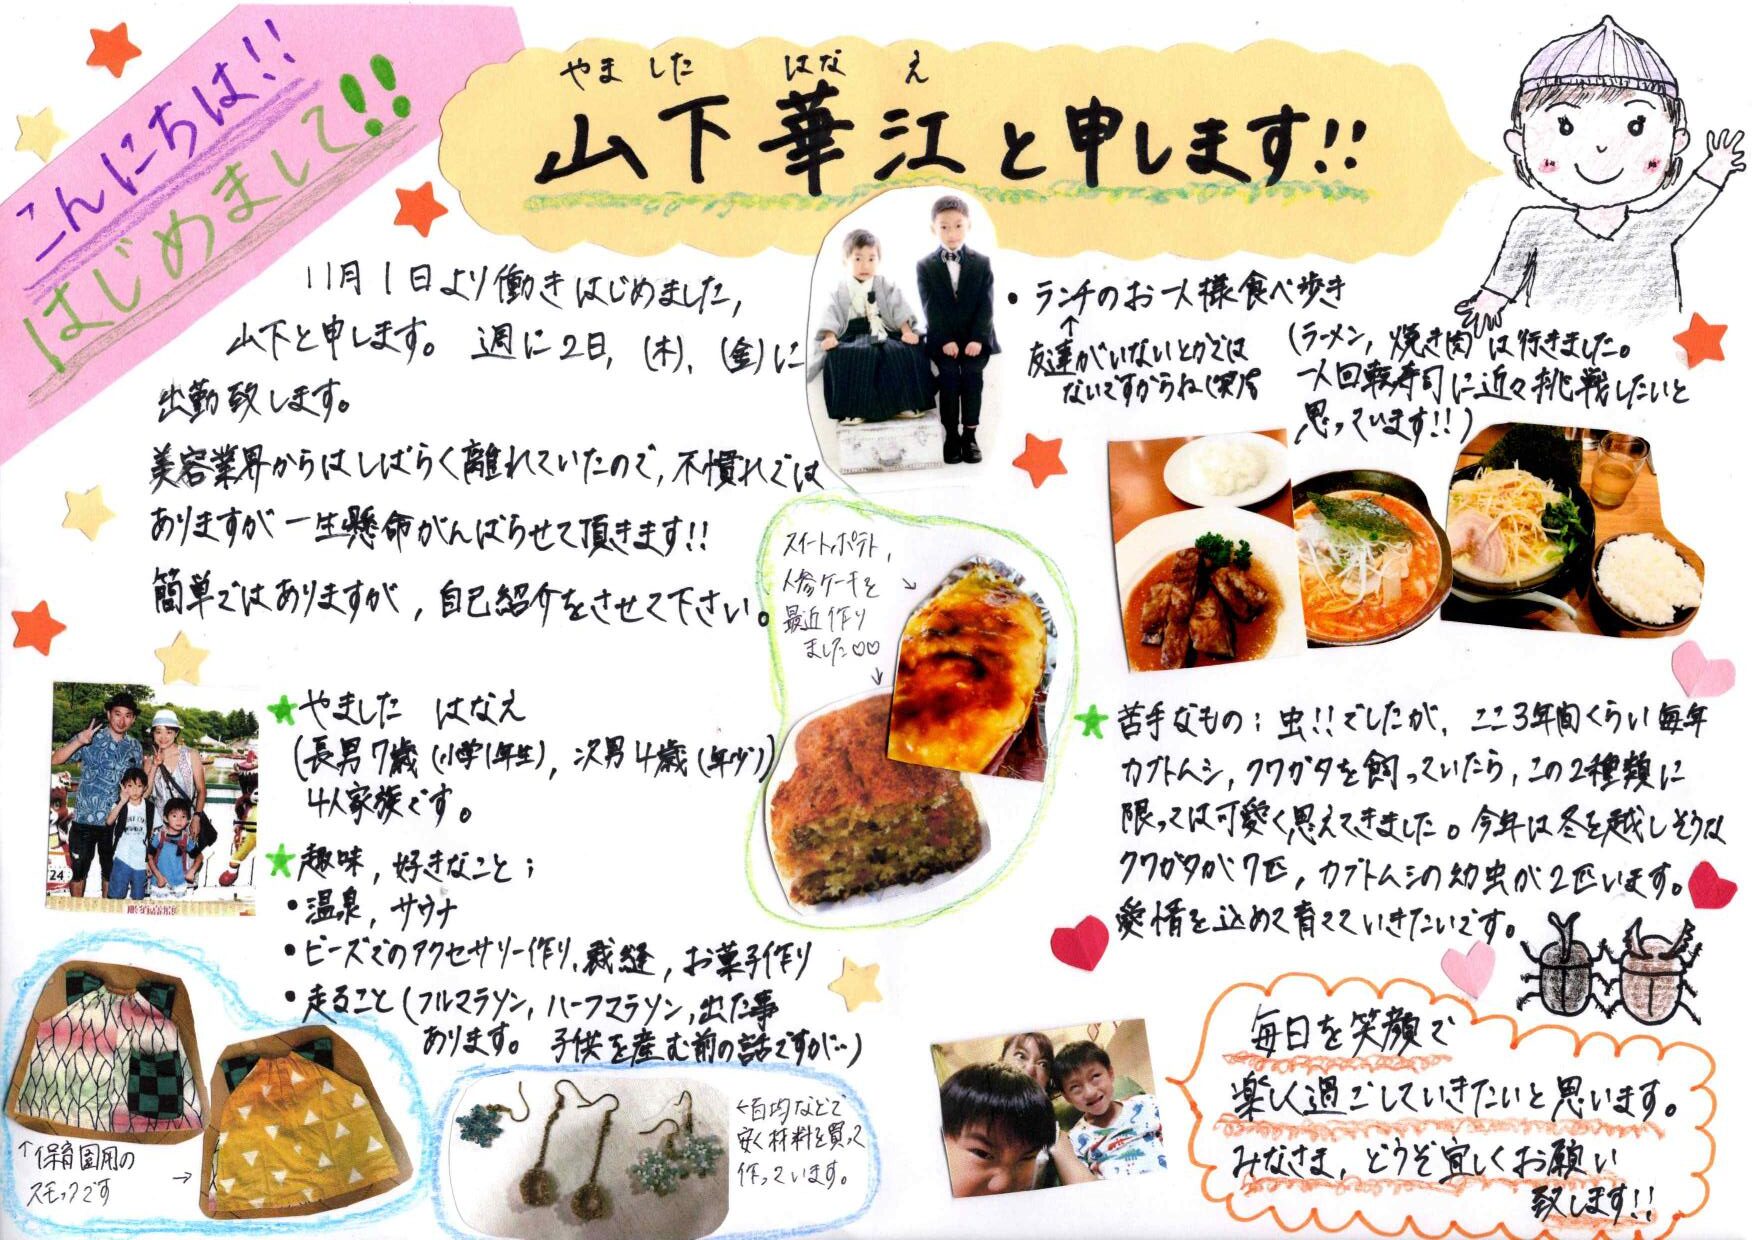 こんにちは!!
はじめまして!!
やました はなえ
山下華江と申します!!
11月1日より働きはじめました,
山下と申します。週に2日,(木),(金)に
出勤致します。
美容業界からはしばらく離れていたので,不慣れでは
ありますが一生懸命がんばらせて頂きます!!
簡単ではありますが,自己紹介をさせて下さい。
★やました はなえ
(長男7歳(小学1年生),次男4歳(年少))
4人家族です。
★趣味,好きなこと;
・温泉,サウナ
・ビーズでのアクセサリー作り,裁縫,お菓子作り
・走ること(フルマラソン,ハーフマラソン,出た事
あります。子供を産む前の話ですが…)
↑保育園用の
スモックです
→
←百均などで
安く材料を買って
作っています。
スイートポテト,
人参ケーキを
最近作り
ました♡♡
・ランチのお一人様食べ歩き
↑
友達がいないとかでは
ないですからね(笑)
(ラーメン,焼き肉は行きました。
一人回転寿司に近々挑戦したいと
思っています!!)
★苦手なもの;虫!!でしたが,ここ3年間くらい毎年
カブトムシ,クワガタを飼っていたら,この2種類に
限っては可愛く思えてきました。今年は冬を越しそうな
クワガタが7匹,カブトムシの幼虫が2匹います。
愛情を込めて育てていきたいです。
毎日を笑顔で
楽しく過ごしていきたいと思います。
みなさま,どうぞ宜しくお願い
致します!!
24